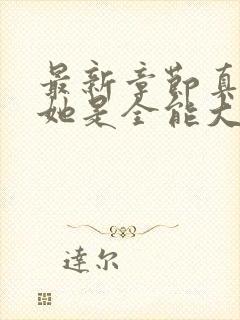 最新章节真
她是全能大
達尔